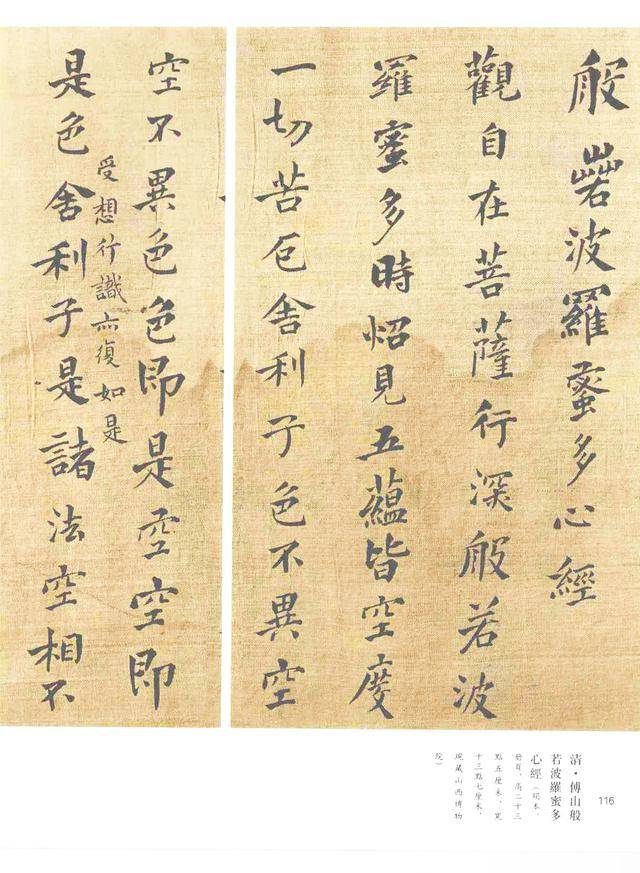 般若波羅蜜多心經
觀自在菩薩行深般若波
羅蜜多時炤見五蘊皆空度
一切苦厄舍利子色不異空
空不異色色即是空空即
受想行識亦復如是
是色舍利子是諸法空相不
清·傅山般
若波羅蜜多
心經（絹本，
冊頁，高二十三
點五厘米，寬
十三點七厘米，
現藏山西博物
院）
116